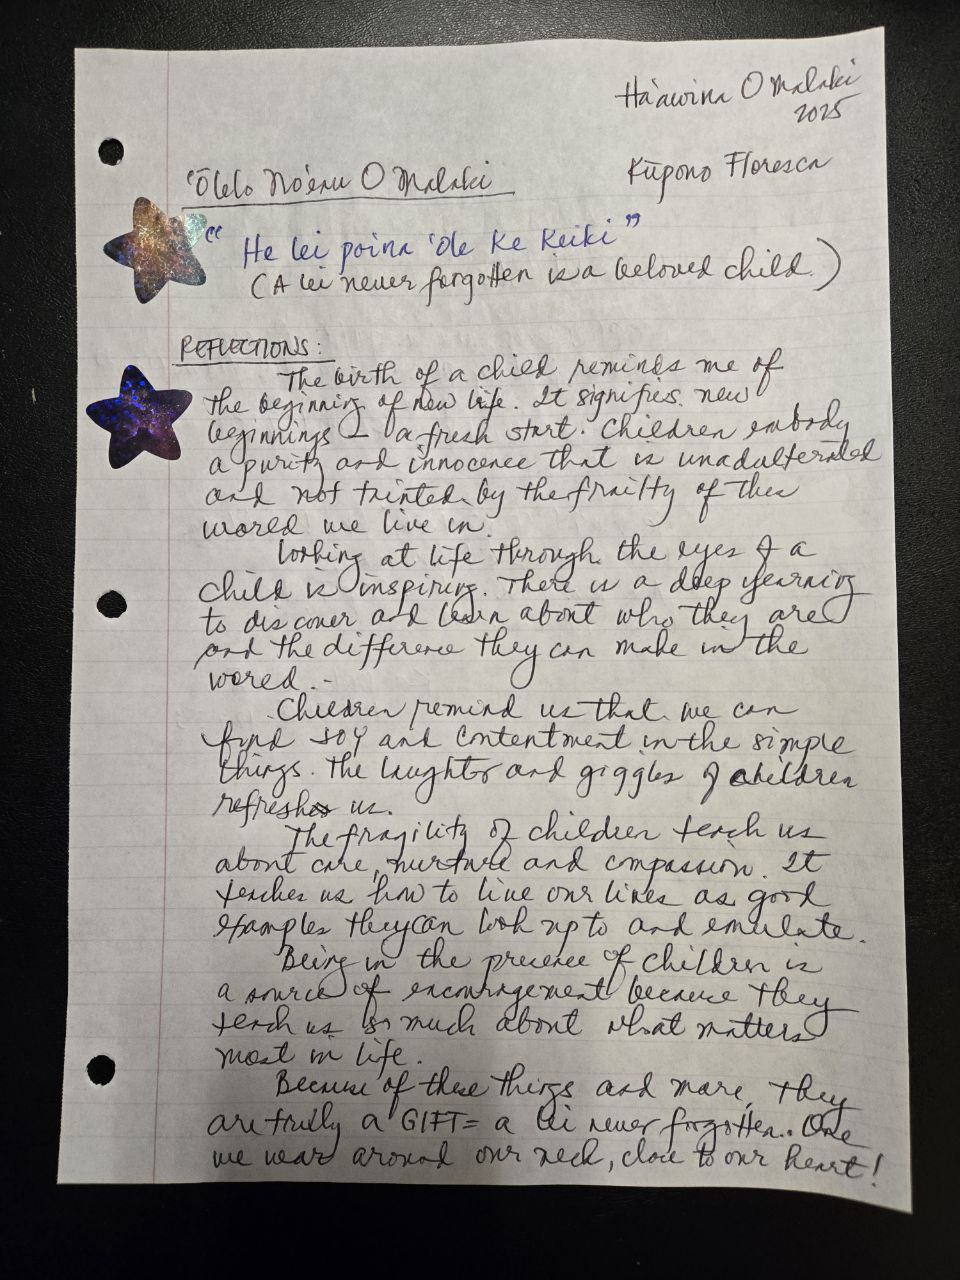 Ha'awina O Malaki
2025
'Ōlelo No'eau O Malaki
Kūpono Floresca
" He lei poina 'ole ke keiki "
(A lei never forgotten is a beloved child.)
REFLECTIONS:
The birth of a child reminds me of
the beginning of new life. It signifies new
beginnings - a fresh start. Children embody
a purity and innocence that is unadulterated
and not tainted by the frailty of the
world we live in.
Looking at life through the eyes of a
child is inspiring. There is a deep yearning
to discover and learn about who they are
and the difference they can make in the
world.
Children remind us that we can
find JOY and contentment in the simple
things. The laughter and giggles of children
refreshes us.
The fragility of children teach us
about care, nurture and compassion. It
teaches us how to live our lives as good
examples they can look up to and emulate.
Being in the presence of children is
a source of encouragement because they
teach us so much about what matters
most in life.
Because of these things and more, they
are truly a GIFT= a lei never forgotten.. One
we wear around our neck, close to our heart!